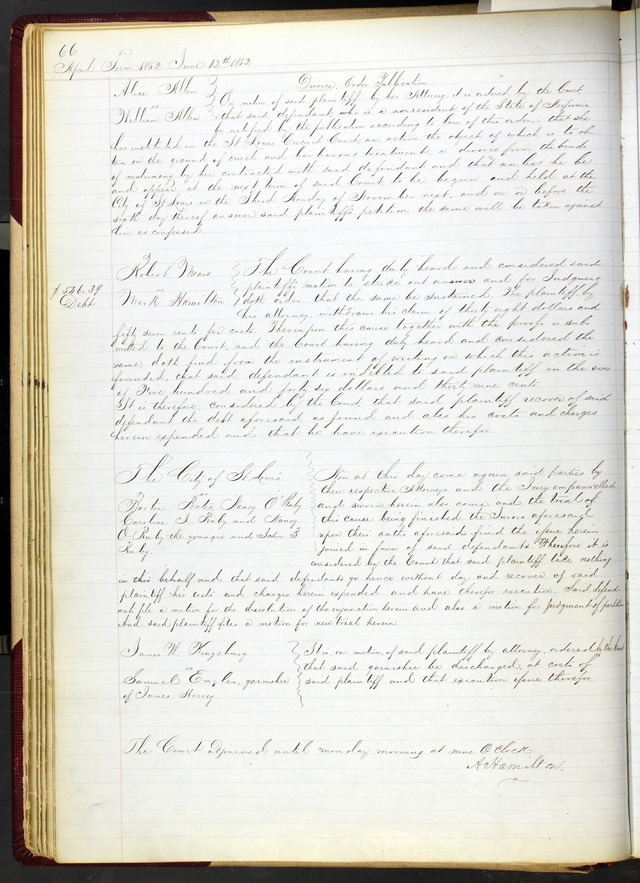 66
April Term 1852 June 12th 1852
Alice Allen
vs
William Allen
Divorce. Order Publication
On motion of said plaintiff by her Attorney it is ordered by the Court
that said defendant who is a nonresident of the State of Missouri
be notified by the publication according to law of this order, that she
has instituted in the St Louis Circuit Court, an action the object of which is to ob
tain on the ground of cruel and barbarous treatment a divorce from the bonds
of matrimony by her contracted with said defendant and that unless he be
and appear at the next term of said Court, to be begun and held at the
City of St Louis on the Third Monday of November next, and on or before the
sixth day thereof answer said plaintiff's petition the same will be taken against
him as confessed.
$546.39
Debt
Robert
vs
Hamilton
The Court having duly heard and considered said
plaintiff's motion to strike out answer and for Judgment
doth order that the same be sustained. The plaintiff by
his attorney, withdraws his claim of thirty eight dollars and
fifty seven cents for costs. Thereupon this cause together with the proofs is sub
mitted to the Court, and the Court having duly heard and considered the
same, doth find from the instrument of writing on which this action is
founded, that said defendant is indebted to said plaintiff in the sum
of Five hundred and forty six dollars and thirty nine cents
It is therefore considered by the Court that said plaintiff recover of said
defendant the debt aforesaid as found and also his costs and charges
herein expended and that he have execution therefor
The City of St Louis
vs
Nancy O'Ruby
Caroline S. Ruby and Nancy
O'Ruby the younger and John F
Ruby
Now at this day come again said parties by
their respective Attorneys and the Jury empannelled
and sworn herein also come, and the trial of
this cause being finished the Jurors aforesaid
upon their oaths aforesaid find the issue herein
joined in favor of said defendants. Wherefore it is
considered by the Court that said plaintiff take nothing
in this behalf and that said defendants go hence without day and recover of said
plaintiff his costs and charges herein expended and have therefor execution. Said defend
ant file a motion for the dissolution of the injunction herein and also a motion for judgment of partition
And said plaintiff files a motion for new trial herein.
James W. Kingsbury
vs
Samuel Engler, garnishee
of James Harvey
It is on motion, of said plaintiff by attorney, ordered by the Court
that said garnishee be discharged at costs of
said plaintiff and that execution issue therefor.
The Court adjourned until monday morning at nine O'clock
A Hamilton